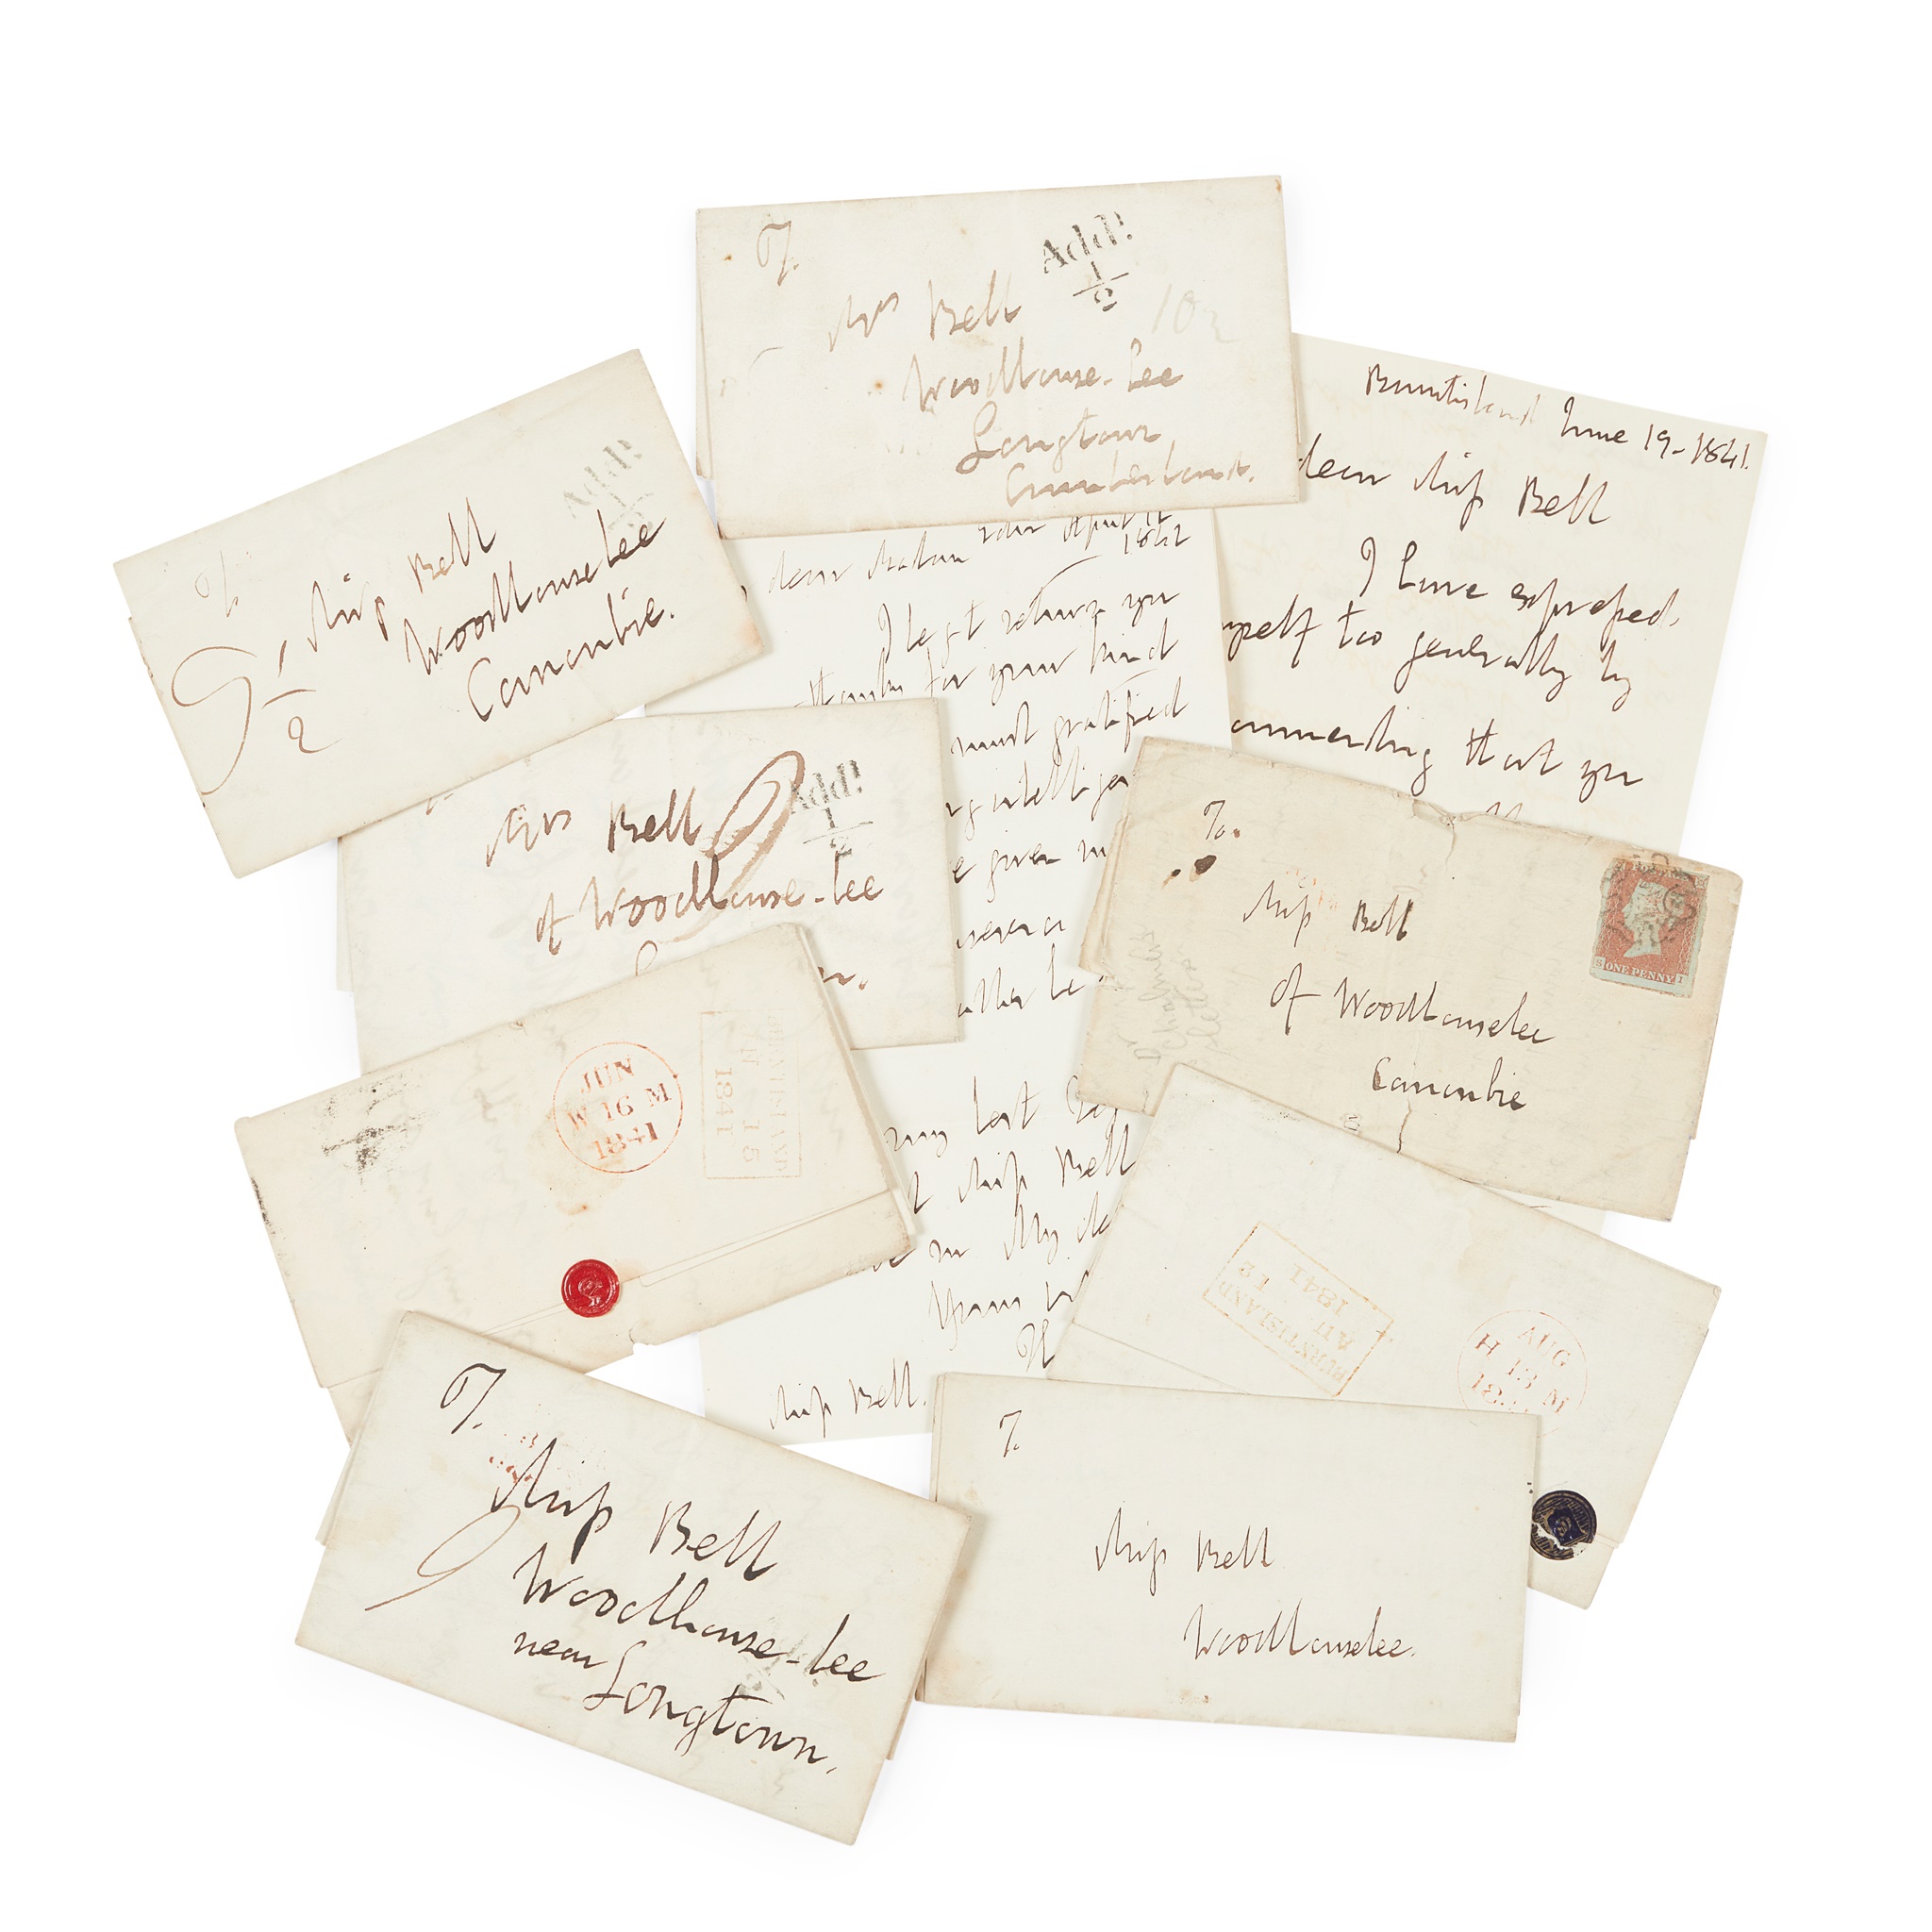 To
Addl
1
2
Mrs Bell
Woodhouse-lee
Longtown
Cumberland.
Burntisland June 19-1841.
dear Miss Bell
I have expressed
myself too generally by
that you
Addl
1
2
Miss Bell
Woodhouselee
Canonbie.
9 1
2
dear Madam
1842
I beg to return you
thanks for your kind
most gratified
given
Mrs Bell
Addl
1
2
of Woodhouse-lee
9
To.
Miss Bell
of Woodhouselee
Canonbie
S ONE PENNY I
Dr Chalmers
letters
JUN
W 16 M
1841
BURNTISLAND
JU
15
1841
my last
Miss Bell
My de
Yours
Miss Bell.
BURNTISLAND
AU
12
1841
AUG
H 13 M
To.
Miss Bell
9
Woodhouse-lee
near Longtown.
To
Miss Bell
Woodhouselee.